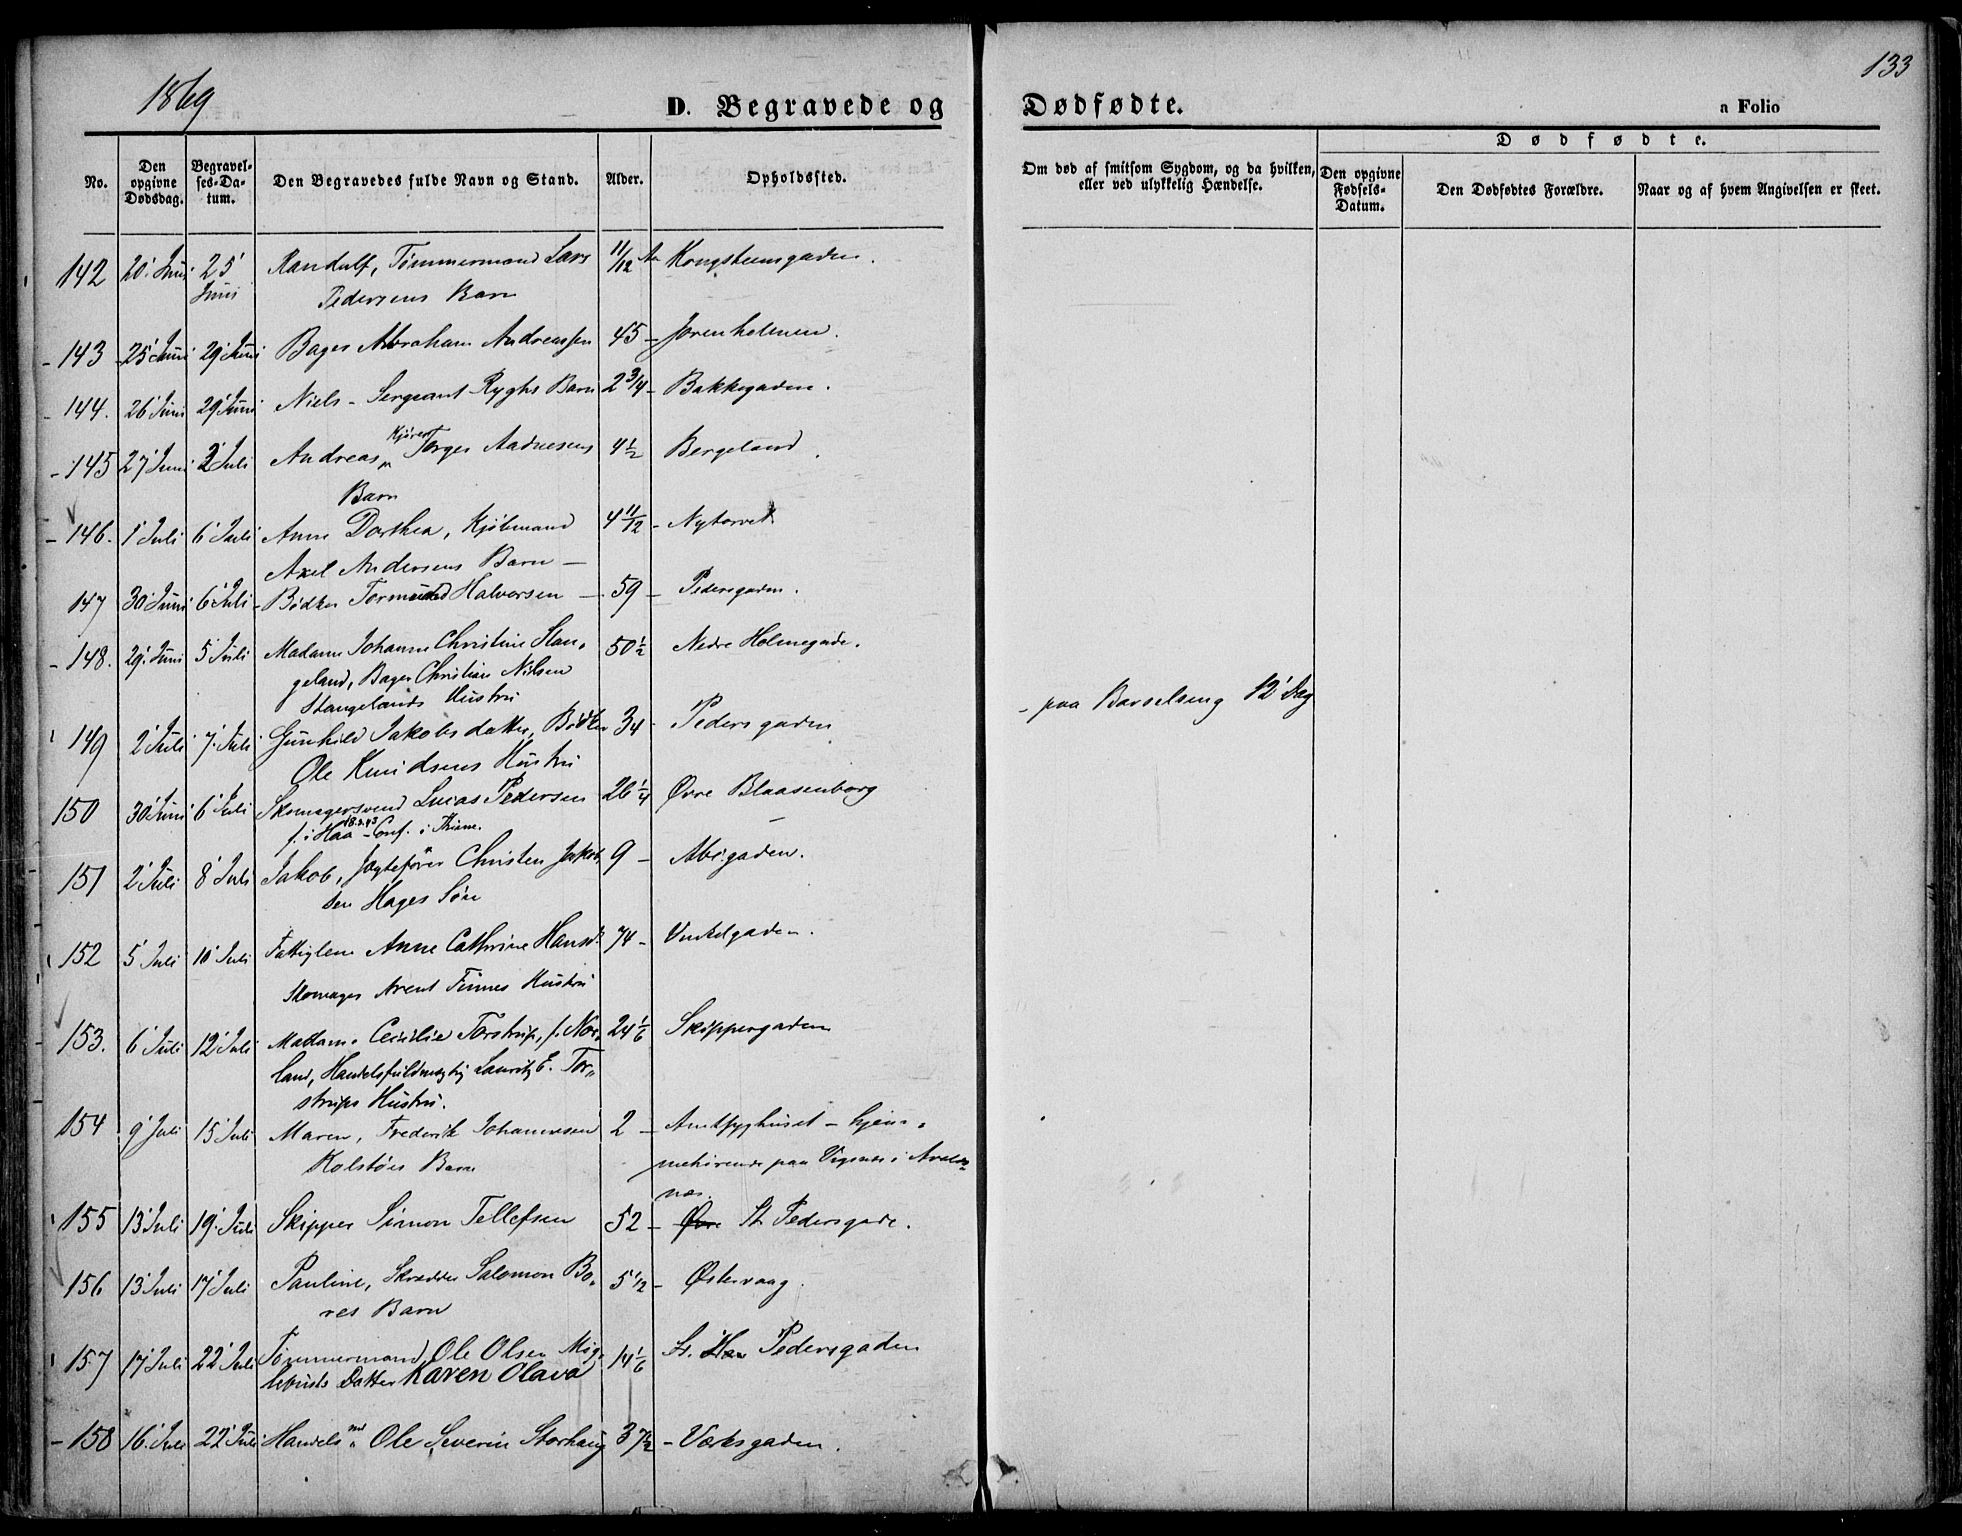 133
1869
D. Begravede og Dødfødte.
n Folio
No.
Den opgivne Dødsdag.
Begravelses-Datum.
Den Begravedes fulde Navn og Stand.
Alder.
Opholdssted.
Om død af smitsom Sygdom, og da hvilken, eller ved ulykkelig Hændelse.
Dødfødte.
Den opgivne Fødsels-Datum.
Den Dødfødtes Forældre.
Naar og af hvem Angivelsen er skeet.
142 20' Juni 25' Randulf, Tømmermand Lars 11/12 Kongsteensgaden.
Juni Pedersens Barn
143 25' Juni 29' Juni Bager Abraham Andreassen 45 - Jorenholmen.
144. 26' Juni 29' Juni Niels - Sergeant Ryghs Barn 2 3/4 - Bakkegaden.
145 27' Juni 2' Juli Andreas, Kjører Torger Aadnesens 4 1/2 Bergeland.
Barn
146. 1' Juli 6' Juli Anne Dorthea, Kjøbmand 4 11/12 - Nytorvet
Axel Andersens Barn -
147 30' Juni 6' Juli - Bødker Tormund Halvorsen - 59 - Pedersgaden.
148. 29' Juni 5' Juli Madame Johanne Christine Stan- 50 1/2 Nedre Holmegade.
geland, Bager Christian Nilsen
Stangelands Hustru
149 2' Juli 7' Juli Gunhild Jakobsdatter, Bødker 34 - Pedersgaden - paa Barselseng 12' Dag
Ole Knudsens Hustru
150 30' Juni 6' Juli Skomagersvend Lucas Pedersen 26 1/4 Øvre Blaasenborg
f. i Haa 18.3.43 - Conf. i Thime.
151 2' Juli 8' Juli Jakob, Jagtefører Christen Jakob- 9 - Abigaden.
sen Hages Søn
152 5' Juli 10' Juli Fattiglem Anne Cathrine Hansd. 74 - Vinkelgaden.
Skomager Arent Finnes Hustru
153. 6' Juli 12' Juli Madame Cecilie Torstrup, f. Nor- 24 1/6 Skippergaden
land, Handelsfuldmægtig Lauritz E. Tor-
strups Hustru.
154 9' Juli 15' Juli Maren, Frederik Johannesen 2 - Amtsyghuset - hjem-
Kolstøes Barn mehørende paa Vigsnes i Avalds-
næs.
155 13' Juli 19' Juli Skipper Simon Tellefsen 52 - Øvre St. Pedersgade.
156 13' Juli 17' Juli Pauline, Skrædder Salomon Bo- 5 1/2 - Østervaag.
res Barn
157 17' Juli 22' Juli Tømmermand Ole Olsen Mig- 14 1/6 St. Pedersgaden
lebusts Datter Karen Olava
158 16' Juli 22' Juli Handelsmd. Ole Severin Storhaug 37 1/2 - Værksgaden.